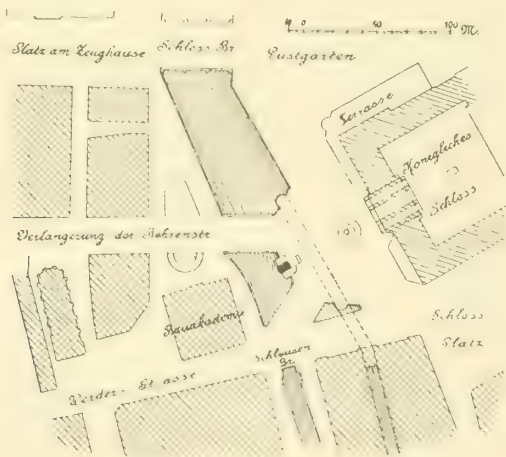 10 0 50 100 M.
Platz am Zeughause
Schloss Br
Lustgarten
Terrasse
Königliches
Schloss
Verlängerung der Behrenstr
Bauakademie
Schleusen
Br
Schloss
Platz
Werder-St asse